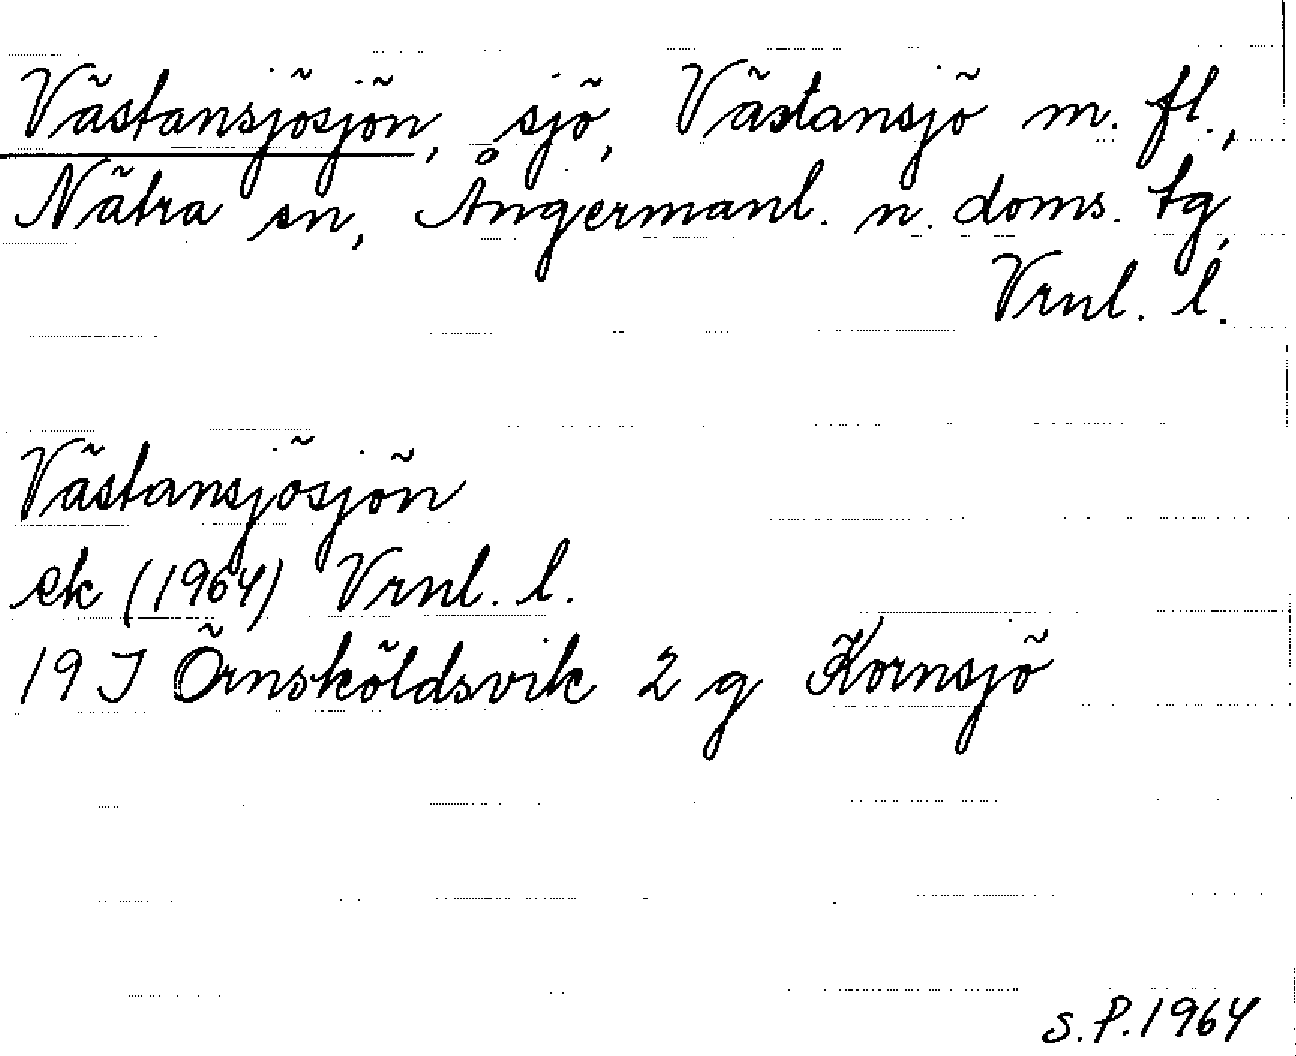 Västansjösjön, sjö, Västansjö m. fl.,
Nätra sn, Ångermanl. n. doms. tg,
Vrnl. l.
Västansjösjön
ek (1964) Vrnl. l.
19 J Örnsköldsvik 2 g Kornsjö
S. P. 1964